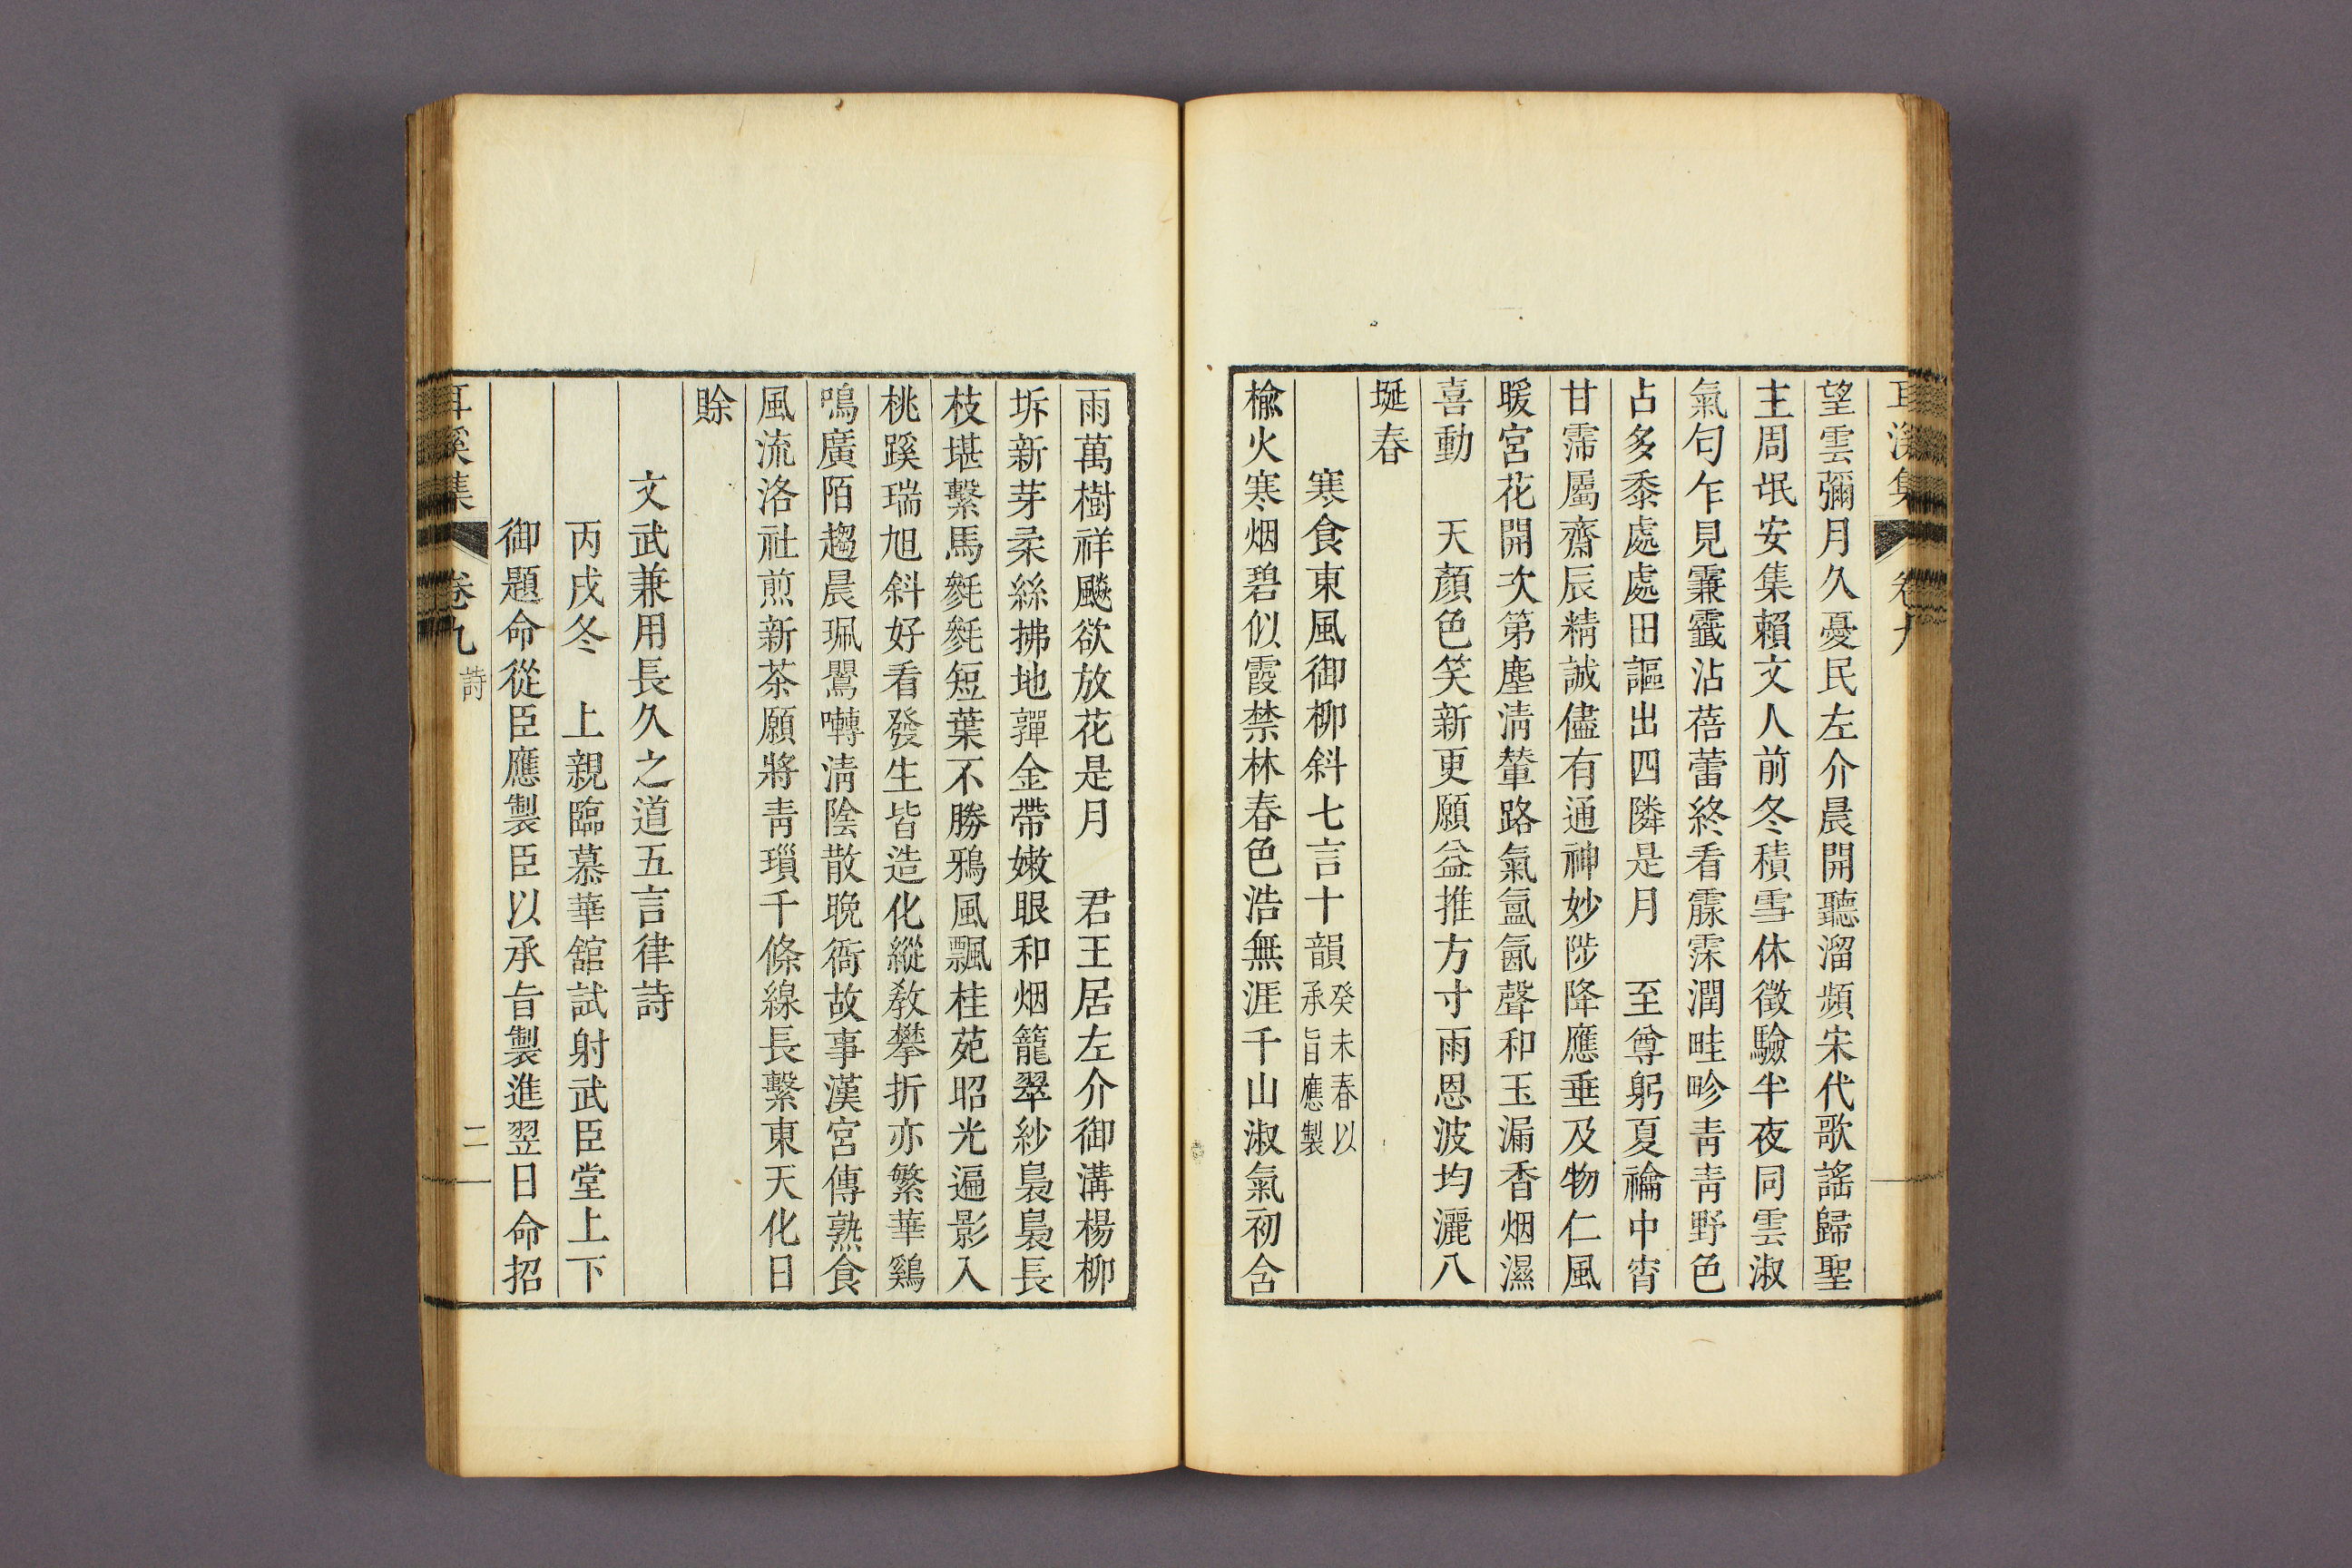 耳溪集 卷九
望雲彌月久憂民左介晨開聽溜頻宋代歌謠歸聖
主周氓安集賴文人前冬積雪休徵驗半夜同雲淑
氣勻乍見霢霡沾蓓蕾終看霢霂潤畦畛靑靑野色
占多黍處處田謳出四隣是月 至尊躬夏禴中宵
甘霈屬齋辰精誠儘有通神妙陟降應垂及物仁風
暖宮花開次第塵淸輦路氣氤氳聲和玉漏香烟濕
喜動 天顏色笑新更願益推方寸雨恩波均灑八
埏春
寒食東風御柳斜七言十韻 癸未春以承旨應製
楡火寒烟碧似霞禁林春色浩無涯千山淑氣初含
雨萬樹祥飈欲放花是月 君王居左介御溝楊柳
坼新芽柔絲拂地嚲金帶嫩眼和烟籠翠紗裊裊長
枝堪繫馬毿毿短葉不勝鴉風飄桂苑昭光遍影入
桃蹊瑞旭斜好看發生皆造化縱敎攀折亦繁華鷄
鳴廣陌趨晨珮鸎囀淸陰散晚衙故事漢宮傳熟食
風流洛社煎新茶願將靑瑣千條線長繫東天化日
賖
文武兼用長久之道五言律詩
丙戌冬 上親臨慕華舘試射武臣堂上下
御題命從臣應製臣以承旨製進翌日命招
耳溪集 卷九 詩 二